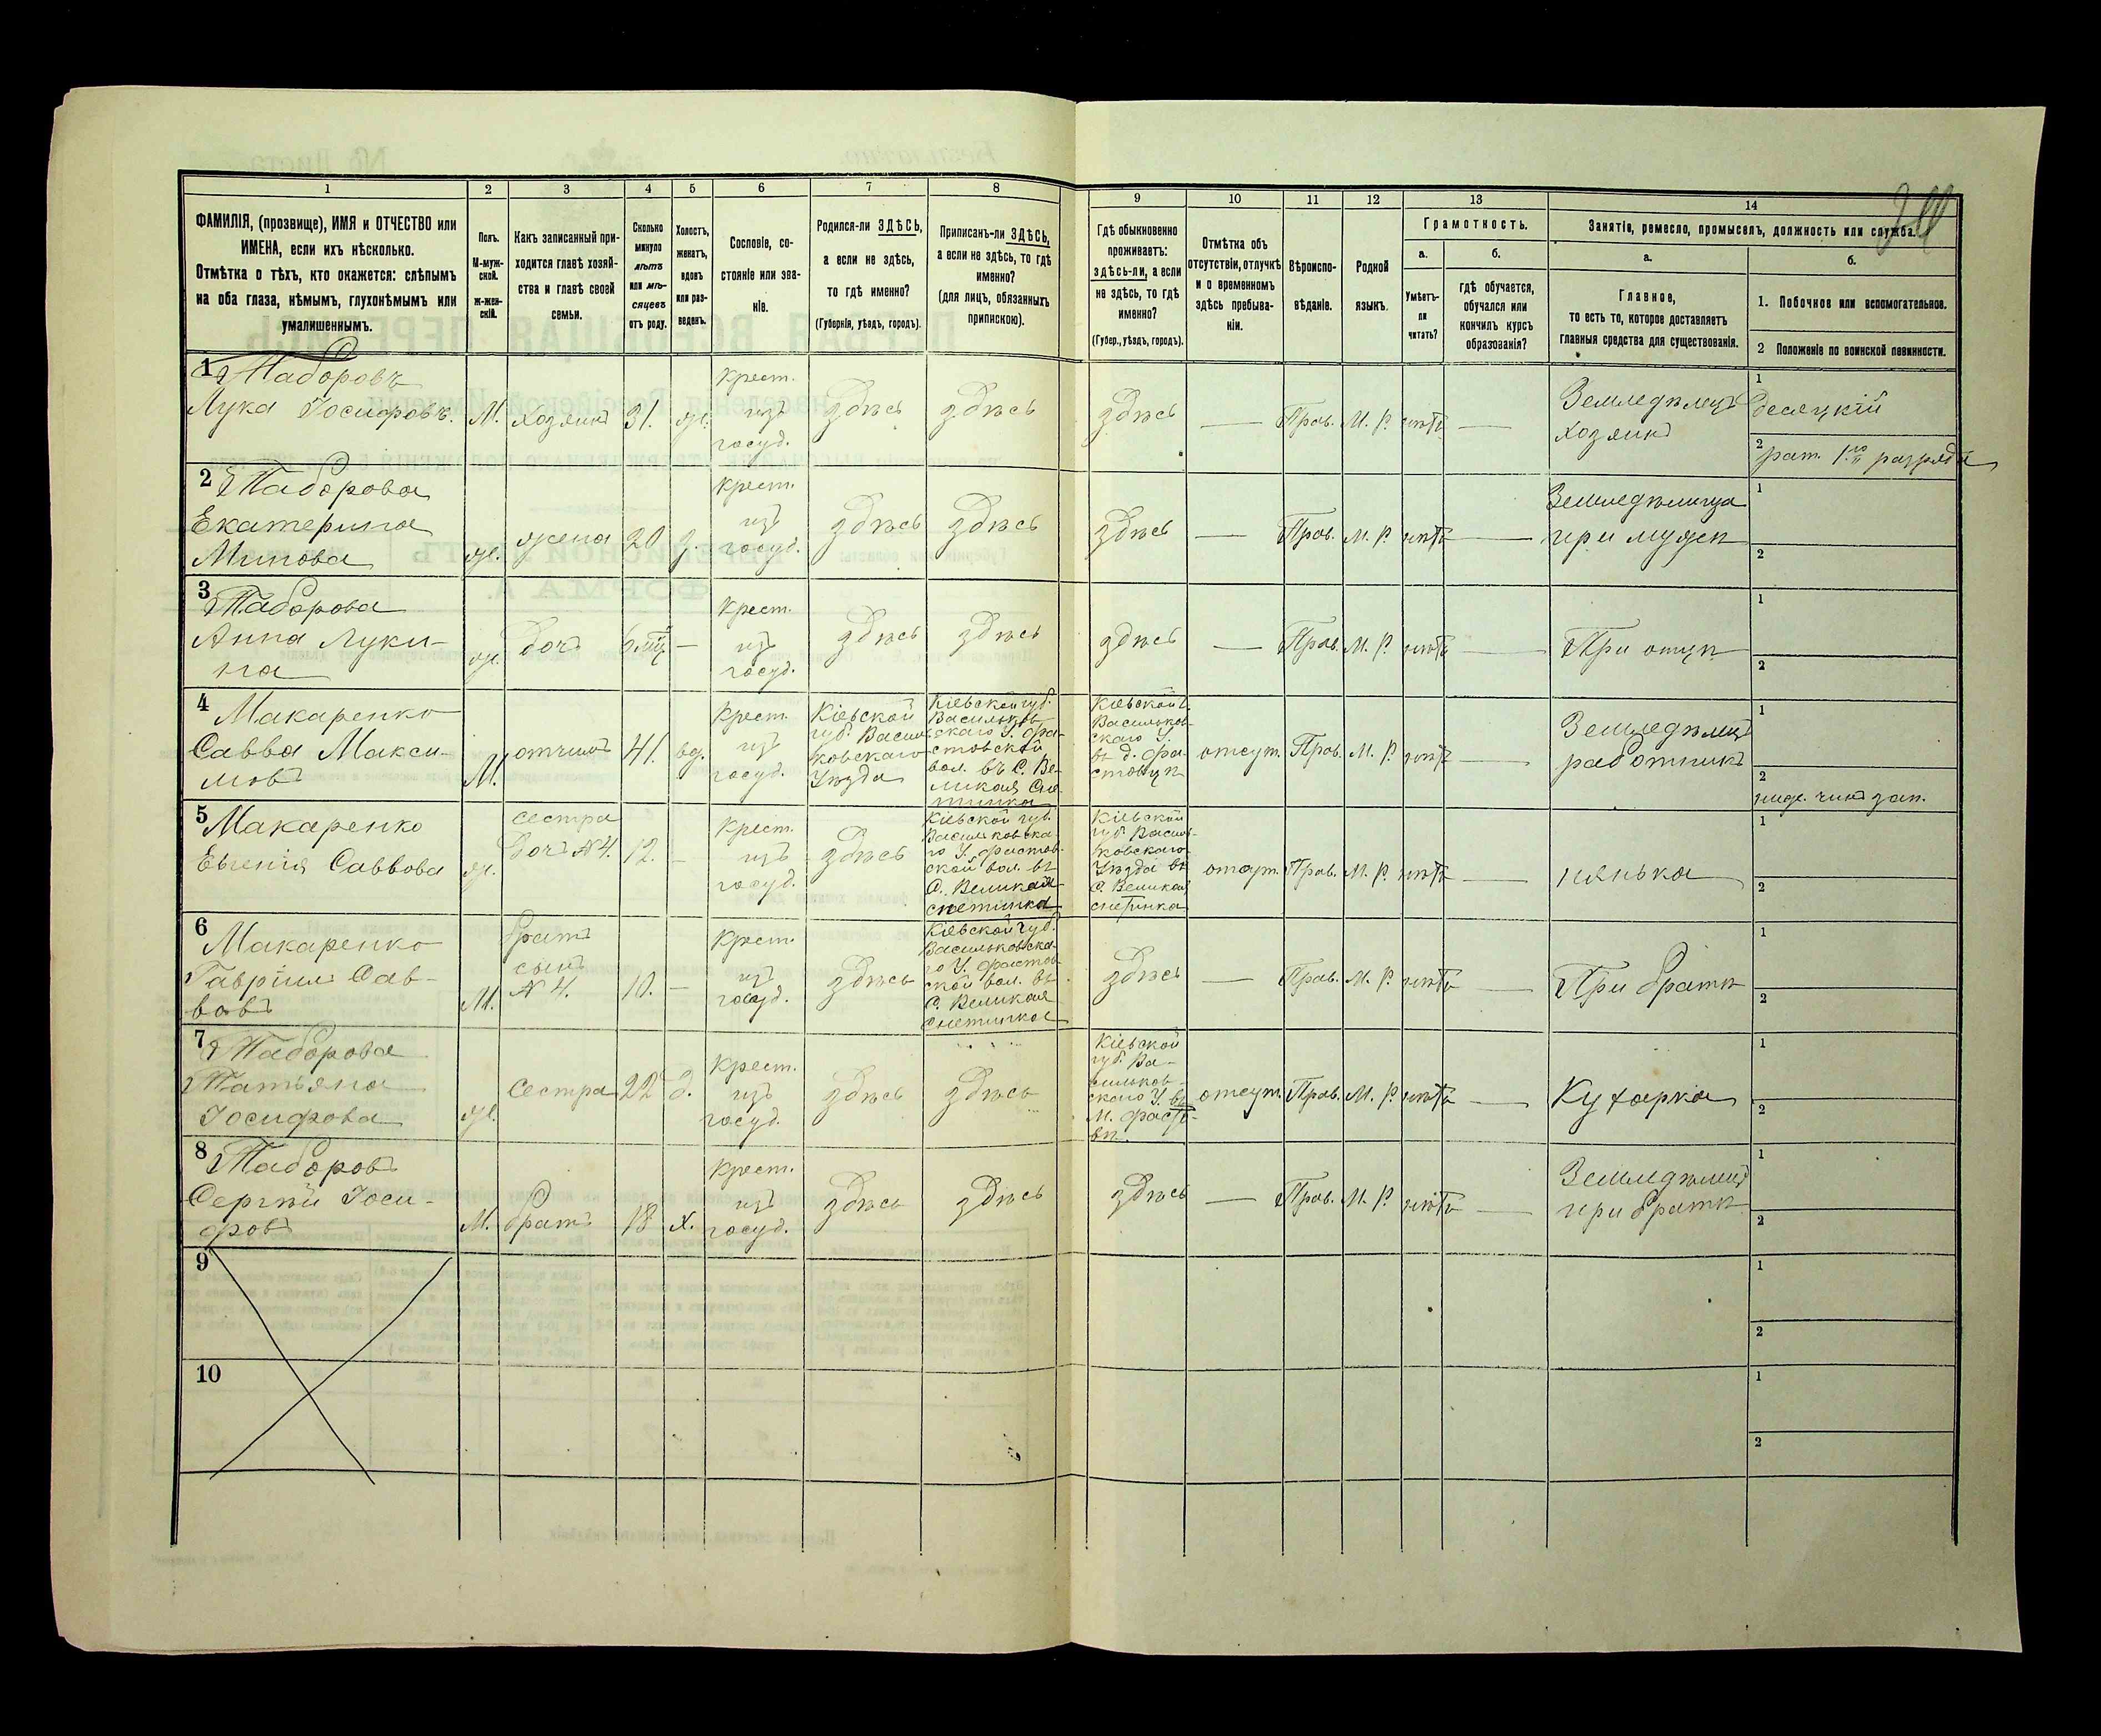 1
2
3
4
5
6
7
8
9
10
11
12
13
14
ФАМИЛІЯ, (прозвище), ИМЯ и ОТЧЕСТВО или
ИМЕНА, если ихъ нѣсколько.
Отмѣтка о тѣхъ, кто окажется: слѣпымъ
на оба глаза, нѣмымъ, глухонѣмымъ или
умалишеннымъ.
Полъ.
М-муж-
ской.
ж-жен-
скій.
Какъ записанный при-
ходится главѣ хозяй-
ства и главѣ своей
семьи.
Сколько
минуло
лѣтъ
или мѣ-
сяцевъ
отъ роду.
Холостъ,
женатъ,
вдовъ
или раз-
веденъ.
Сословіе, со-
стояніе или зва-
ніе.
Родился-ли ЗДѢСЬ,
а если не здѣсь,
то гдѣ именно?
(Губернія, уѣздъ, городъ).
Приписанъ-ли ЗДѢСЬ,
а если не здѣсь, то гдѣ
именно?
(для лицъ, обязанныхъ
припискою).
Гдѣ обыкновенно
проживаетъ:
здѣсь-ли, а если
не здѣсь, то гдѣ
именно?
(Губер., уѣздъ, городъ).
Отмѣтка объ
отсутствіи, отлучкѣ
и о временномъ
здѣсь пребыва-
ніи.
Вѣроиспо-
вѣданіе.
Родной
языкъ.
Грамотность.
а.
Умѣетъ-
ли
читать?
б.
гдѣ обучается,
обучался или
кончилъ курсъ
образованія?
Занятіе, ремесло, промыселъ, должность или служба.
а.
Главное,
то есть то, которое доставляетъ
главныя средства для существованія.
б.
1. Побочное или вспомогательное.
2 Положеніе по воинской повинности.
1 Таборовъ
Лука Іосифовъ.
М.
хозяинъ
31.
ж.
крест.
изъ
госуд.
здѣсь
здѣсь
здѣсь
—
Прав.
М. Р.
нѣтъ
—
Земледѣлецъ
хозяинъ
1
десяцкій
2
рат. 1го разряда
2 Таборова
Екатерина
Минова
ж.
жена
20
з.
крест.
изъ
госуд.
здѣсь
здѣсь
здѣсь
—
Прав.
М. Р.
нѣтъ
—
Земледѣлица
при мужѣ
1
2
3 Таборова
Анна Луки-
на
ж.
дочь
6 мц
—
крест.
изъ
госуд.
здѣсь
здѣсь
здѣсь
—
Прав.
М. Р.
нѣтъ
—
При отцѣ
1
2
4 Макаренко
Савва Макси-
мовъ
М.
отчимъ
41.
вд.
крест.
изъ
госуд.
Кіевской
губ. Василь-
ковскаго
Уѣзда
Кіевской губ.
Васильков-
скаго У. Фа-
стовской
вол. въ С. Ве-
ликая Сне-
тинка
Кіевской г.
Васильков-
скаго У.
въ д. Фа-
стовцѣ
отсут.
Прав.
М. Р.
нѣтъ
—
Земледѣлецъ
работникъ
1
2
ниж. чинъ зап.
5 Макаренко
Евгенія Саввова
ж.
сестра
дочь №4.
12.
—
крест.
изъ
госуд.
здѣсь
Кіевской губ.
Васильковска-
го У. Фастов-
ской вол. въ
С. Великая
Снетинка
Кіевской
губ. Василь-
ковскаго
Уѣзда въ
С. Великая
Снетинка
отсут.
Прав.
М. Р.
нѣтъ
—
нянька
1
2
6 Макаренко
Гавріилъ Сав-
вовъ
М.
братъ
сынъ
№ 4.
10.
—
крест.
изъ
госуд.
здѣсь
Кіевской губ.
Васильковска-
го У. Фастов-
ской вол. въ
С. Великая
Снетинка
здѣсь
—
Прав.
М. Р.
нѣтъ
—
При братѣ
1
2
7 Таборова
Татьяна
Іосифова
ж.
сестра
22
д.
крест.
изъ
госуд.
здѣсь
здѣсь
Кіевской
губ. Ва-
сильков-
скаго У. въ
М. Фасто-
вѣ.
отсут.
Прав.
М. Р.
нѣтъ
—
Кухарка
1
2
8 Таборовъ
Сергѣй Іоси-
фовъ
М.
братъ
18
х.
крест.
изъ
госуд.
здѣсь
здѣсь
здѣсь
—
Прав.
М. Р.
нѣтъ
—
Земледѣлецъ
при братѣ
1
2
9
1
2
10
1
2